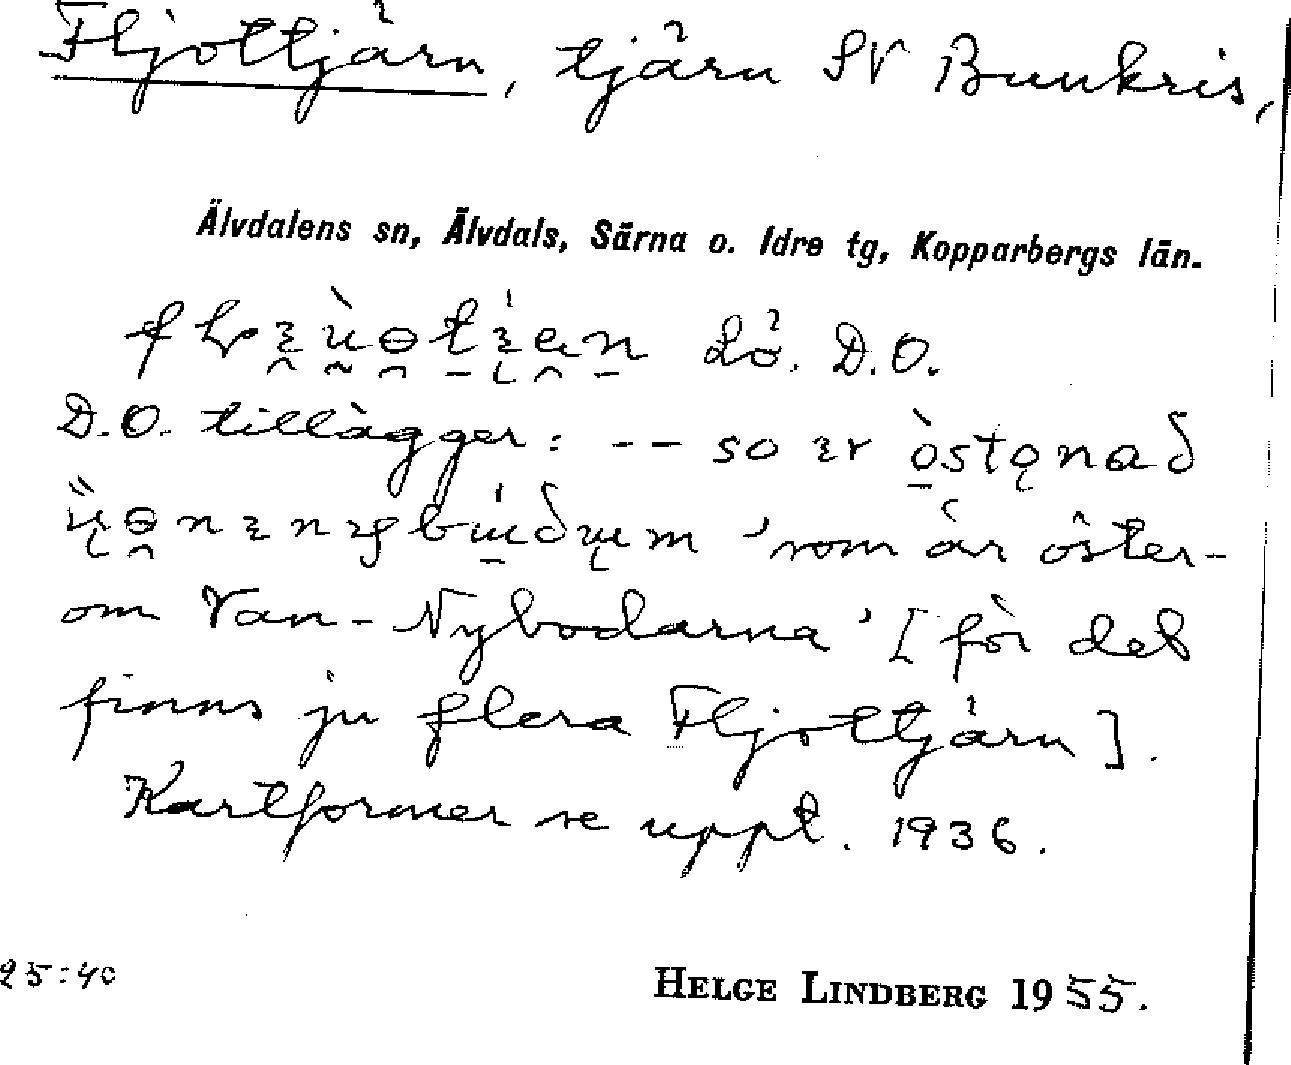 Fljottjärn, tjärn SV Bunkris,
Älvdalens sn, Älvdals, Särna o. Idre tg, Kopparbergs län.
Lö. D.O.
D.O. tillägger: -- so er òstǫnað
'som är öster-
om Van-Nybodarna' [för det
finns ju flera Fljottjärn].
Kartformer se uppt. 1936.
25:40
HELGE LINDBERG 1955.